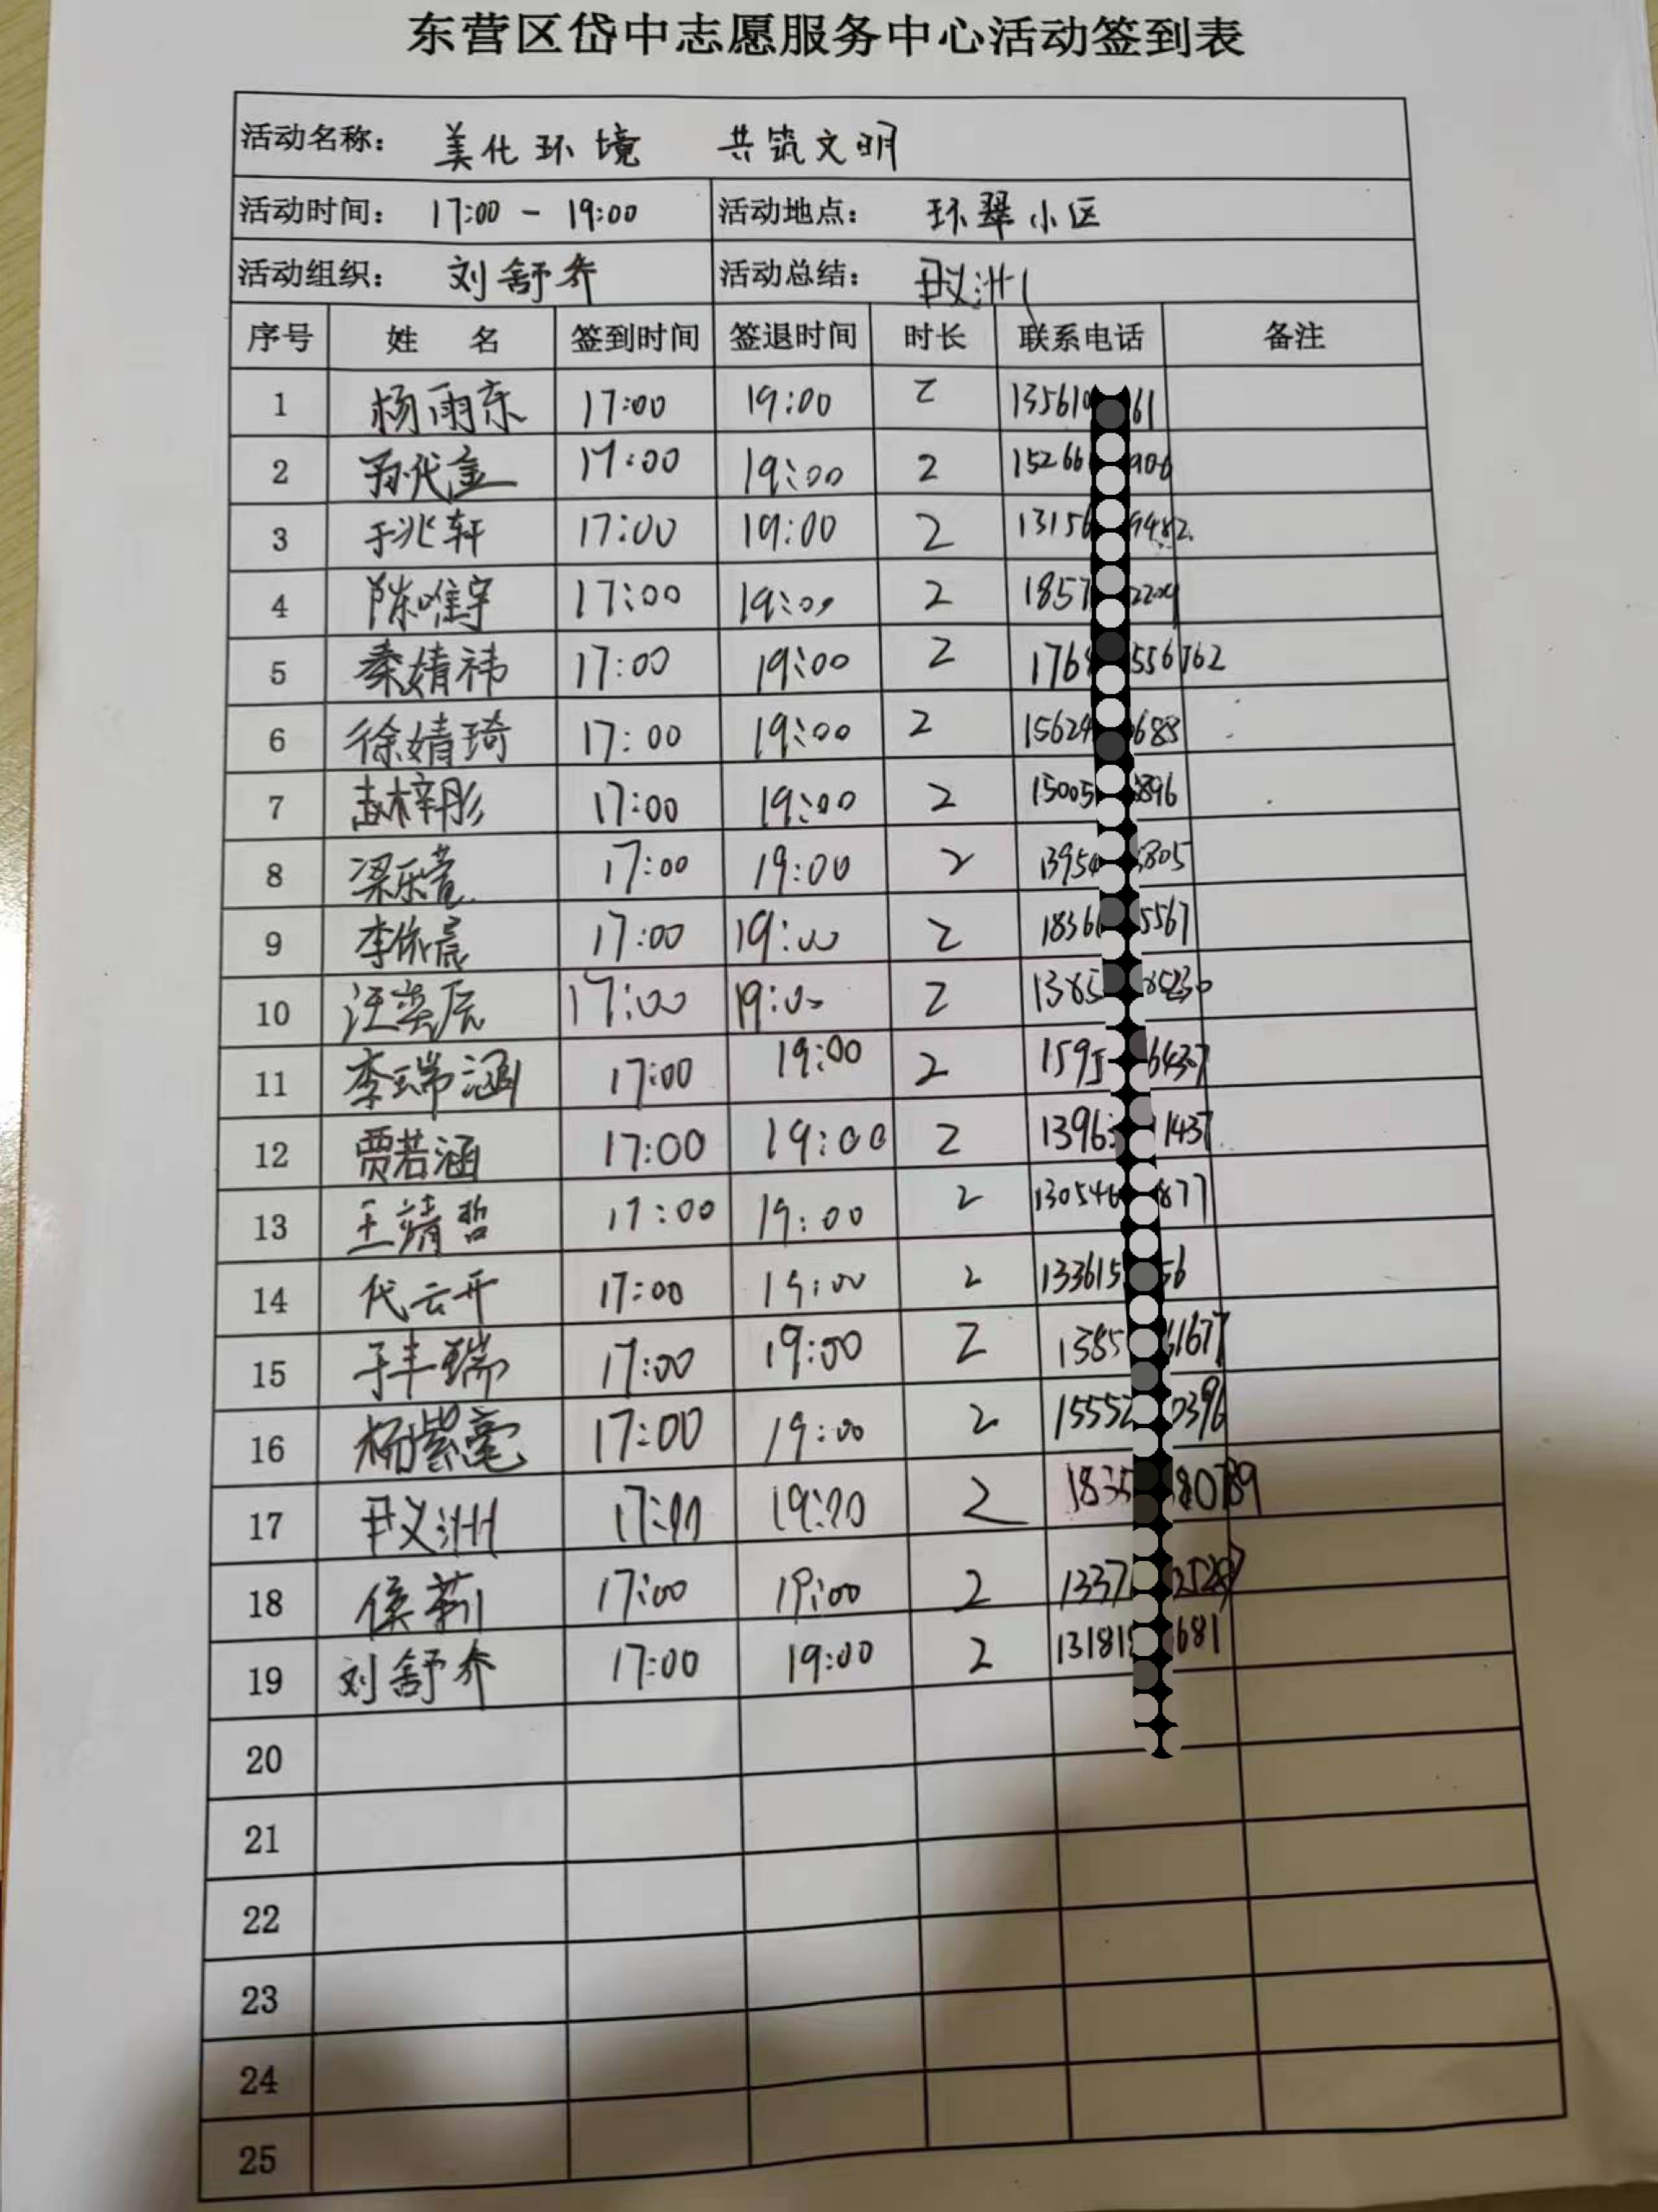 东营区岱中志愿服务中心活动签到表
活动名称： 美化环境 共筑文明
活动时间： 17:00 - 19:00 活动地点： 环翠小区
活动组织： 刘舒乔 活动总结： 尹义洲
序号 姓 名 签到时间 签退时间 时长 联系电话 备注
1 杨雨东 17:00 19:00 2 135610 61
2 孙代金 17:00 19:00 2 15266 906
3 于兆轩 17:00 19:00 2 13156 9482
4 陈唯宇 17:00 19:00 2 1857 2204
5 秦婧祎 17:00 19:00 2 1768 556762
6 徐婧琦 17:00 19:00 2 15624 688
7 赵梓彤 17:00 19:00 2 15005 896
8 梁乐萱 17:00 19:00 2 13954 805
9 李依晨 17:00 19:00 2 1836 5567
10 汪奕辰 17:00 19:00 2 1385
11 李瑞涵 17:00 19:00 2 1595 6437
12 贾若涵 17:00 19:00 2 1396 1437
13 王靖哲 17:00 19:00 2 130546 877
14 代云开 17:00 19:00 2 133615 56
15 于丰瑞 17:00 19:00 2 1385 1677
16 杨紫毫 17:00 19:00 2 15552 0396
17 尹义洲 17:00 19:00 2 1835 80789
18 侯莉 17:00 19:00 2 1337
19 刘舒乔 17:00 19:00 2 13181 681
20
21
22
23
24
25